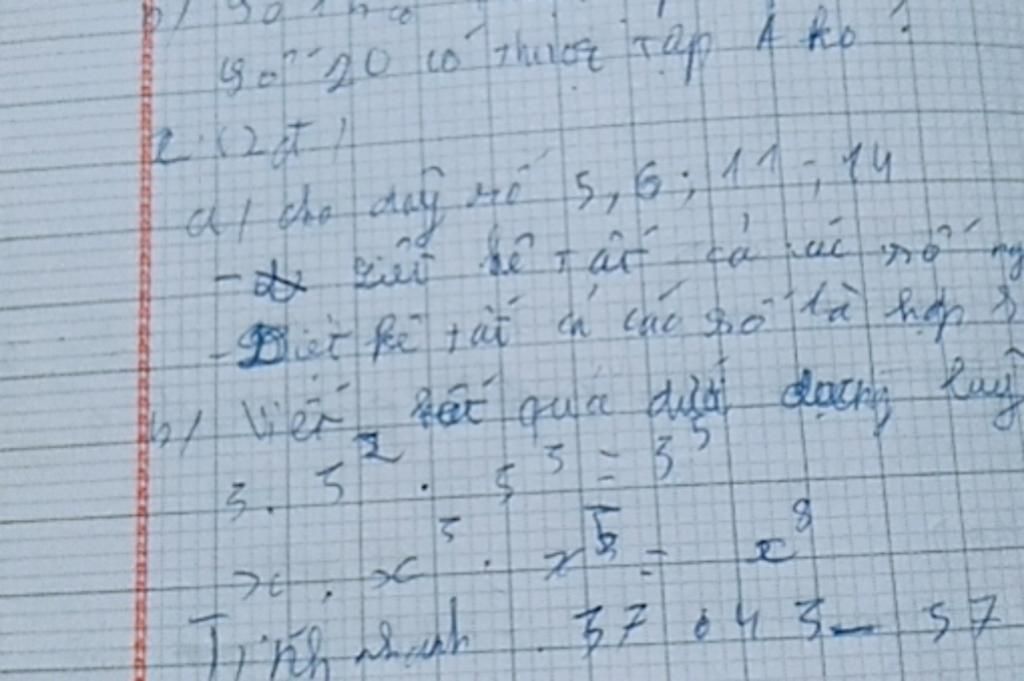 số 20 có thuộc tập A ko?
2. (2đ)
a) cho dãy số 5, 6; 11; 14
- Liết kê tất cả các số ng
- Liết kê tất cả các số là hợp s
b) Viết kết quả dưới dạng luỹ
3. 3² . 3³ = 3⁵
x . x³ . x⁵ = x⁸
Tính nhanh 37 . 43 - 37